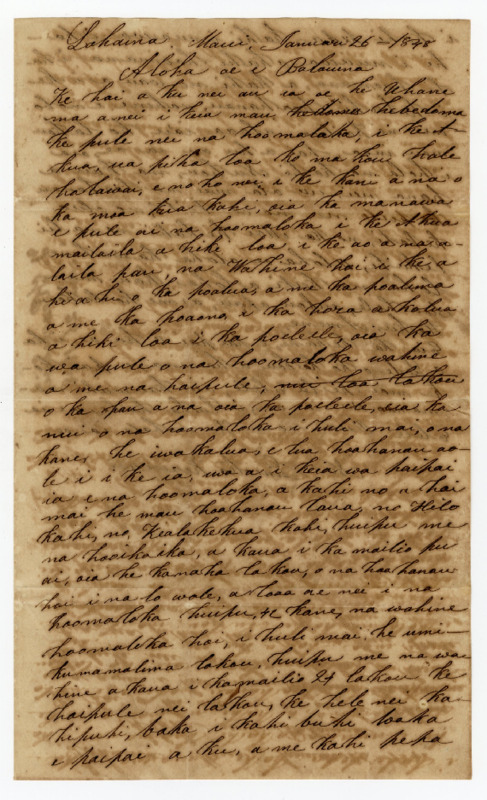 Lahaina, Maui, Januari 26 - 1838
Aloha oe i Balauina
Ke hai a ku nei au ia oe he Uhane
ma a nei i keia mau hebedoma
ke pule nei na hoomaloka, i ke A-
kua, ua piha loa ko ma kou hale
halawai, e noho nei i ke kani a na o
ka moa kuakahi, oia ka manawa
e pule ai na hoomaloka i ke Akua
mailaila a hiki loa i ke ao a ma a-
laila pau, na Wahine hai i ke a
hi a hi o ka poalua, a me ka poalima
a me ka poaono, i ka hora a kolua
a hiki loa i ka poeleele, oia ka
wa pule o na hoomaloka wahine
a me na haipule, nui loa lakou
o ka pau a na oia ka poeleele, oia ka
nui o na hoomaloka i huli mai, o na
kane, he iwakalua, e lua hoahanau ao-
le i i ke ia, uwa a i keia wa paipai
ia e na hoomaloka, a kahi no a hai
mai he mau hoahanau laua, no Hilo
kahi, no Kealakekua kahi, huipu me
na hooikaika, a kaua i ka mailio pu
ai, oia he kanaha lakou, o na hoahanau
hai i na lo wale, a loaa ae nei i na
hoomaloka huipu, 42 kane, na wahine
hoomaloka hai, i huli mai he umi-
kumamalima lakou, huipu me na wa-
hine a kaua i kamailio 24 lakou ke
haipule nei lakou, ke hele nei ka-
hipuhi, baka i kahi buhi baka
e paipai a ku, a me kahi pepa